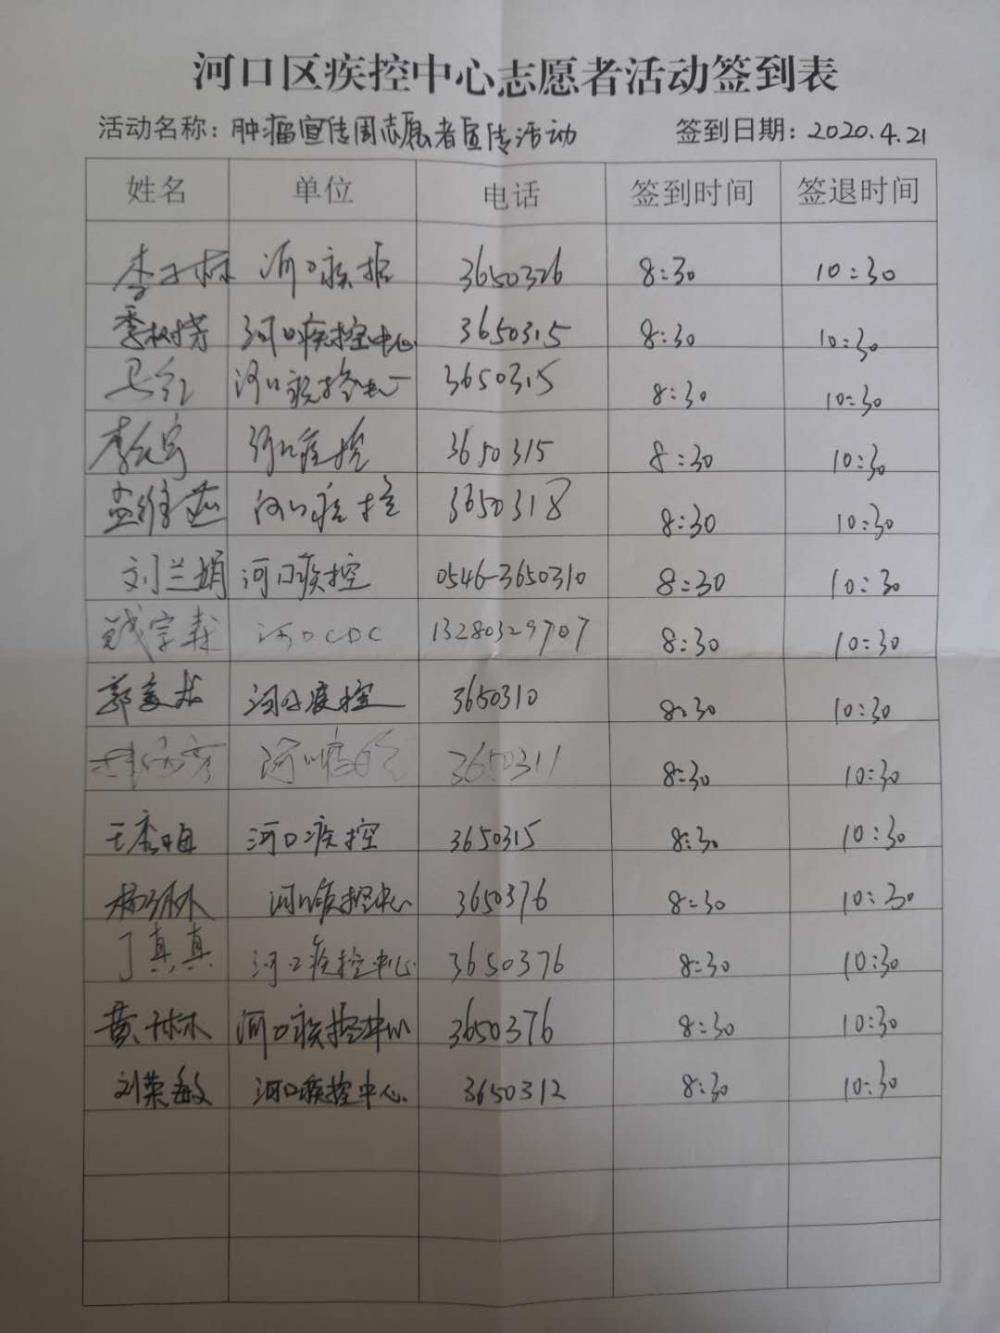 河口区疾控中心志愿者活动签到表
活动名称：肿瘤宣传周志愿者宣传活动 签到日期：2020.4.21
姓名 单位 电话 签到时间 签退时间
李子林 河口疾控 3650326 8:30 10:30
季树芳 河口疾控中心 3650315 8:30 10:30
马红 河口疾控中心 3650315 8:30 10:30
河口疾控 3650315 8:30 10:30
孟维燕 河口疾控 3650318 8:30 10:30
刘兰娟 河口疾控 0546-3650310 8:30 10:30
河口CDC 13280329707 8:30 10:30
河口疾控 3650310 8:30 10:30
河口疾控 3650311 8:30 10:30
河口疾控 3650315 8:30 10:30
河口疾控中心 3650376 8:30 10:30
丁真真 河口疾控中心 3650376 8:30 10:30
河口疾控中心 3650376 8:30 10:30
刘荣敏 河口疾控中心 3650312 8:30 10:30